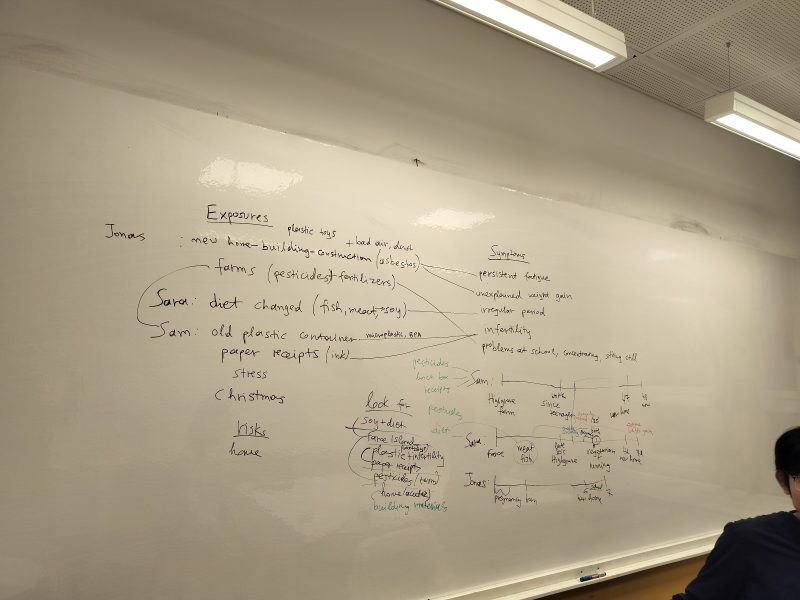 Exposures
plastic toys
Jonas : new home-building-construction (asbestos) + bad air, dust
farms (pesticides + fertilizers)
Sara: diet changed (fish, meat, → soy)
Sam: old plastic container microplastic, BPA
paper receipts (ink)
stress
Christmas
Risks
home
Symptoms
persistent fatigue
unexplained weight gain
irregular period
infertility
problems at school, concentrating, sitting still
look for
soy + diet
Faroe island
plastic + infertility
paper receipts
pesticides
home
building materials
pesticides
lunch box
receipts
Sam:
Highgrove
farm
work
since
teenager
new home
now
pesticides
diet
Sara
Faroe
meat
fish
Highgrove
vegetarian
+
running
new home
Jonas:
pregnancy born
new home